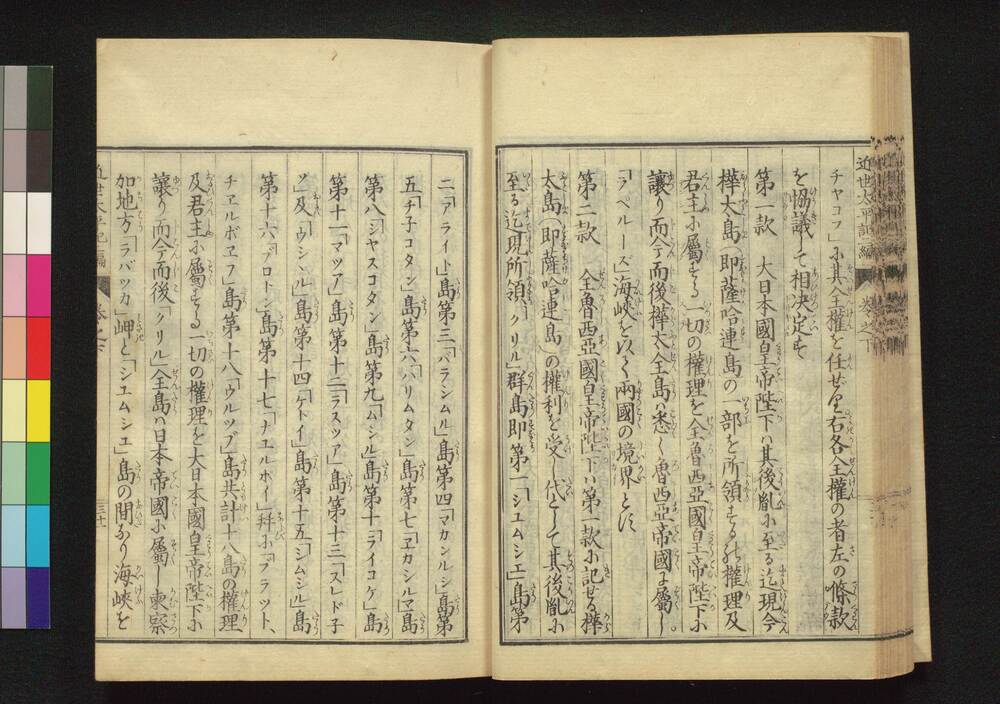 近世太平記編 巻之下
チヤコフ」ニ其全權を任せり右各全權の者左の條款
を協議して相决定す
第一款 大日本國皇帝陛下ハ其後胤ニ至る迄現今
樺太島(即薩哈連島の一部を所領するの權理及
君主ニ屬する一切の權理を全魯西亞國皇帝陛下ニ
讓り而今而後樺太全島ハ悉く魯西亞帝國よ屬し。
「ラペルース」海峡を以て兩國の境界とす
第二款 全魯西亞國皇帝陛下ハ第一款ニ記せる樺
太島(即薩哈連島)の權利を受し代として其後胤ニ
至る迄現所領「クリル」群島即第一「シユムシユ」島第
二「アライト」島第三「パランムル」島第四「マカンルシ」島第
五「子コタン」島第六「ハリムタン」島第七「ヱカシルマ」島
第八「シヤスコタン」島第九「ムシル」島第十「ライコケ」島
第十一「マツア」島第十二「ラスツア」島第十三「スレド子
ワ」及「ウシヽル」島第十四「ケトイ」島第十五「シムシル」島
第十六「プロトン」島第十七「チユルポイ」幷ニ「プラツト、
チヱルボヱフ」島第十八「ウルツプ」島共計十八島の權理
及君主ニ屬する一切の權理を大日本國皇帝陛下ニ
讓り而今而後「クリル」全島ハ日本帝國ニ屬し東察
加地方「ラパツカ」岬と「シユムシユ」島の間なり海峡を